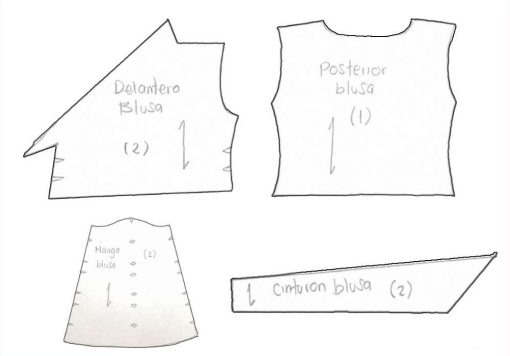 Delantero
Blusa
(2)
Posterior
blusa
(1)
Manga
blusa
(2)
Cinturon blusa (2)